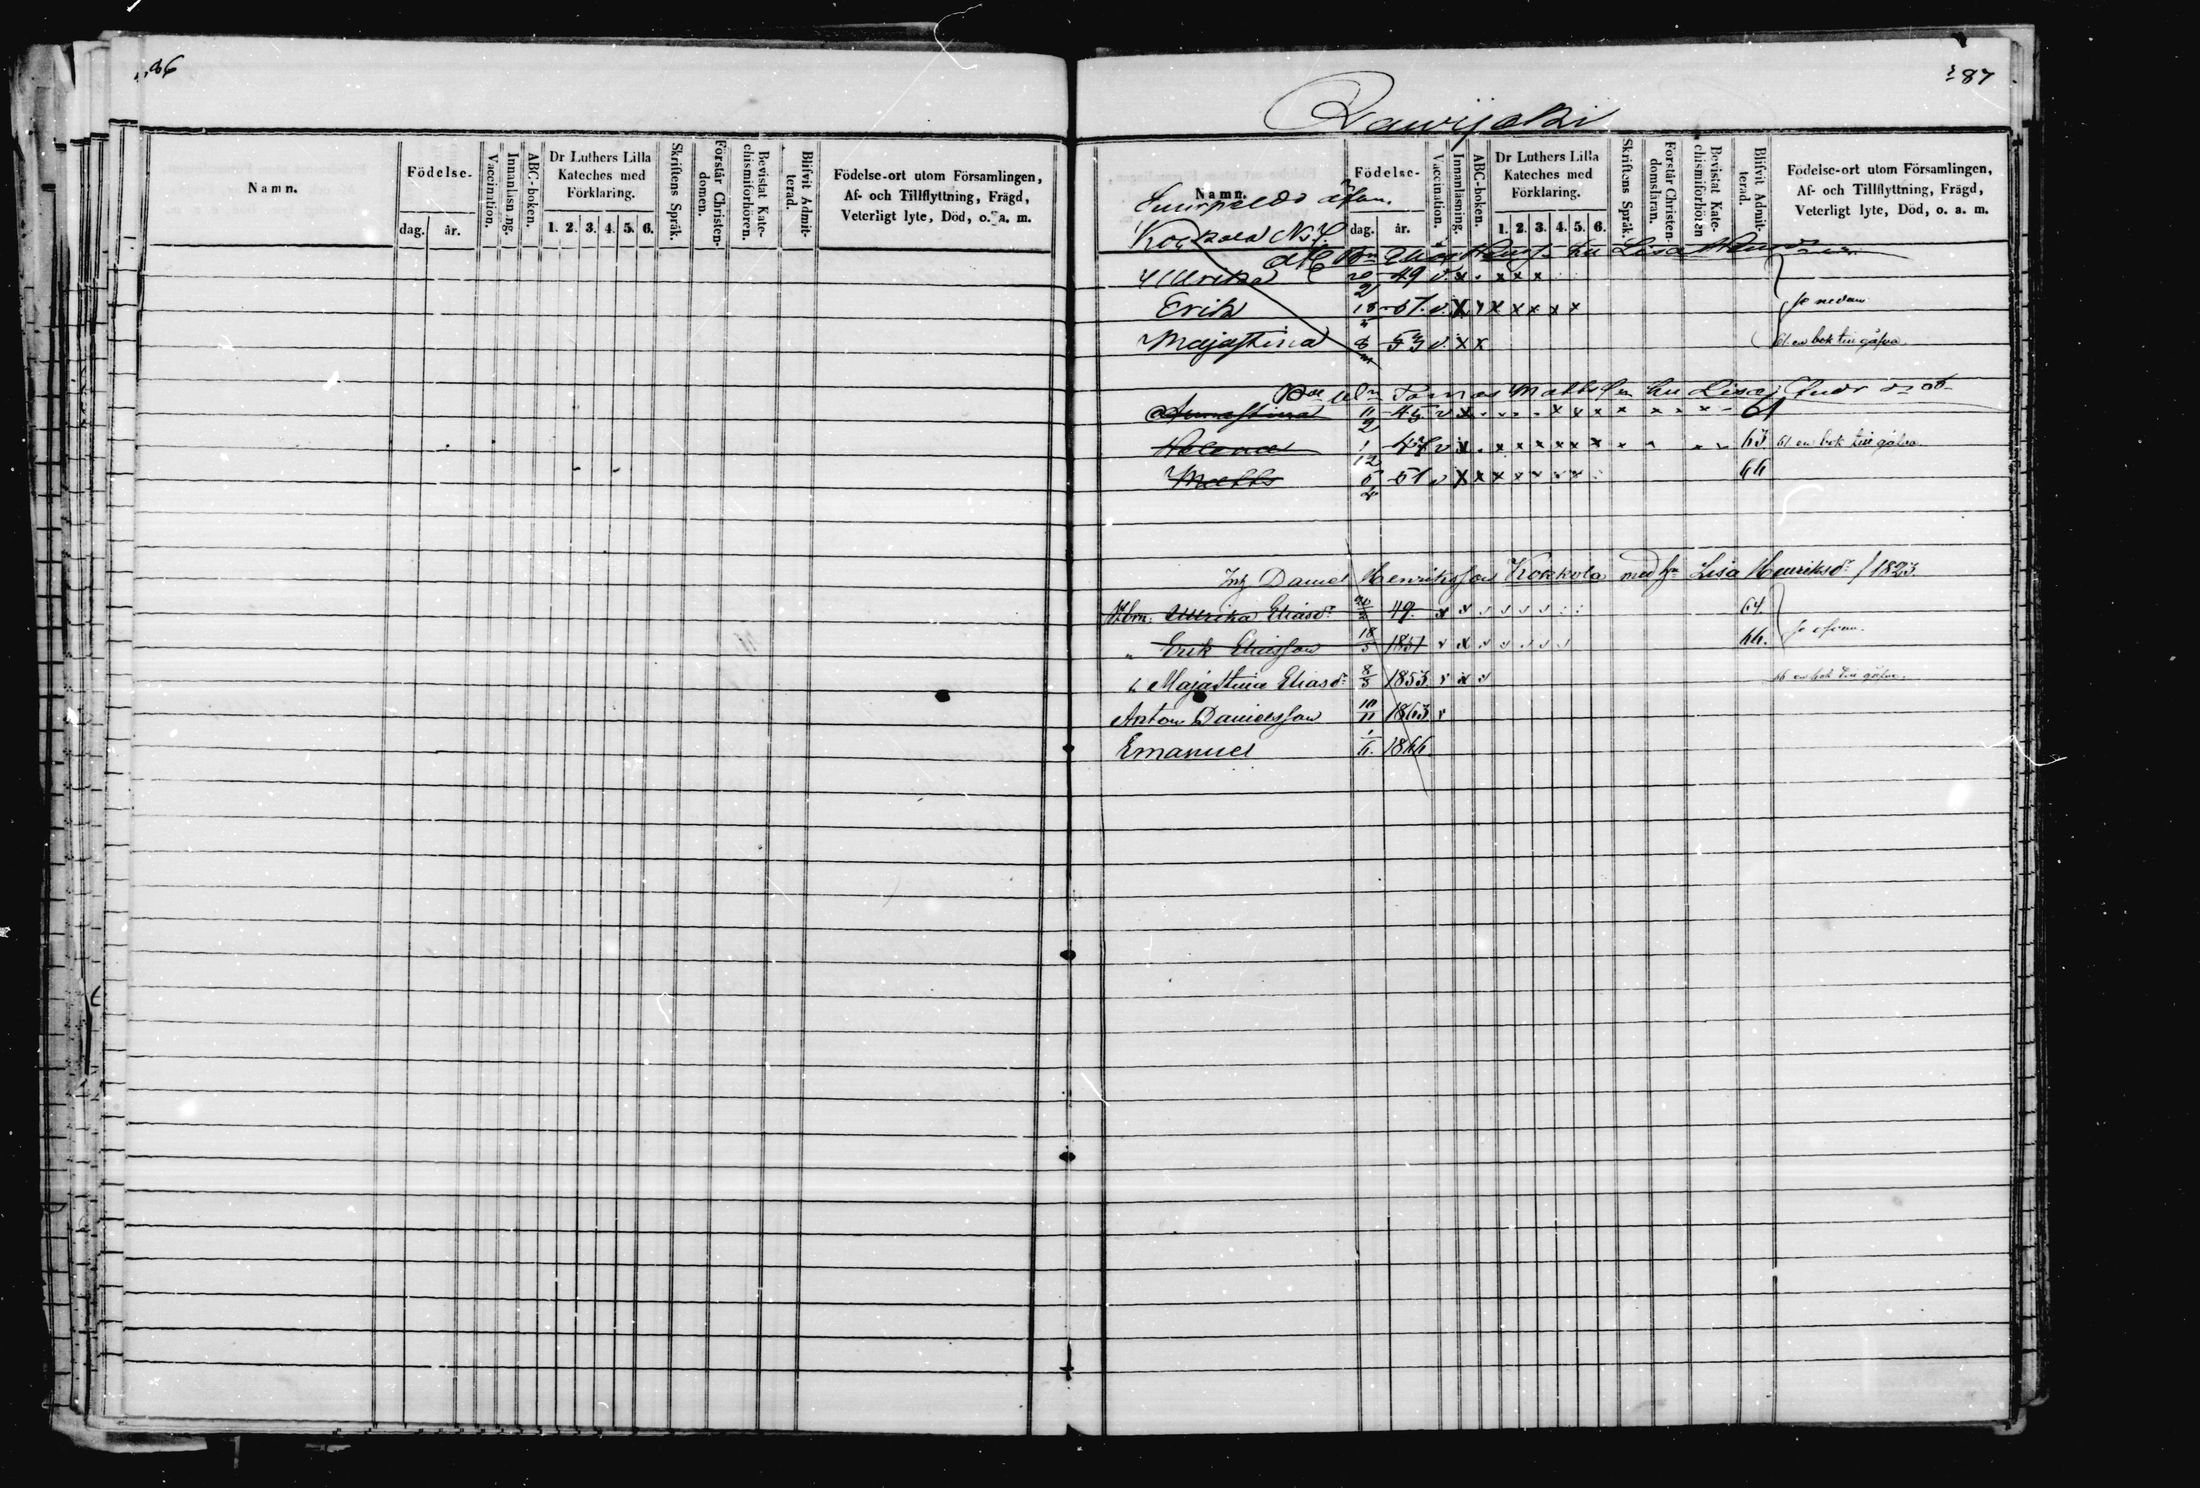 86
Namn.
Födelse-
dag. år.
Vaccination.
Innanläsning.
ABC-boken.
Dr Luthers Lilla
Kateches med
Förklaring.
1. 2. 3. 4. 5. 6.
Skriftens Språk.
Förstår Christen-
domen.
Bevistat Kate-
chismiförhören.
Blifvit Admit-
terad.
Födelse-ort utom Församlingen,
Af- och Tillflyttning, Frägd,
Veterligt lyte, Död, o. a. m.
287
Namn.
Födelse-
dag. år.
Vaccination.
Innanläsning.
ABC-boken.
Dr Luthers Lilla
Kateches med
Förklaring.
1. 2. 3. 4. 5. 6.
Skriftens Språk.
Förstår Christen-
domsläran.
Bevistat Kate-
chismiförhören
Blifvit Admit-
terad.
Födelse-ort utom Församlingen,
Af- och Tillflyttning, Frägd,
Veterligt lyte, Död, o. a. m.
Ulrika 20/2 49 v. x . x x x
Erik 18 51. v. x x x x x x x x Se nedan
Majastina 8 53 v. x x 61 en bok till gåfva
Tomas Matts hu Lisa
Annastina 11/2 45 v x 61
Helena 1/12 47 v x 63 61 en bok till gåfva
Matts 51 v x x x x x x x 66
Inh Daniel Henriksson Kokkola med hu Lisa Henriksdr / 1823.
Ulrika Eliasdr 20/2 49. 64.
Erik Eliasson 18/5 1851 66. Se ofvan.
Majastina Eliasdr 8/5 1853 66 en bok till gåfva.
Anton Danielsson 10/11 1863 v
Emanuel 1/6. 1866.